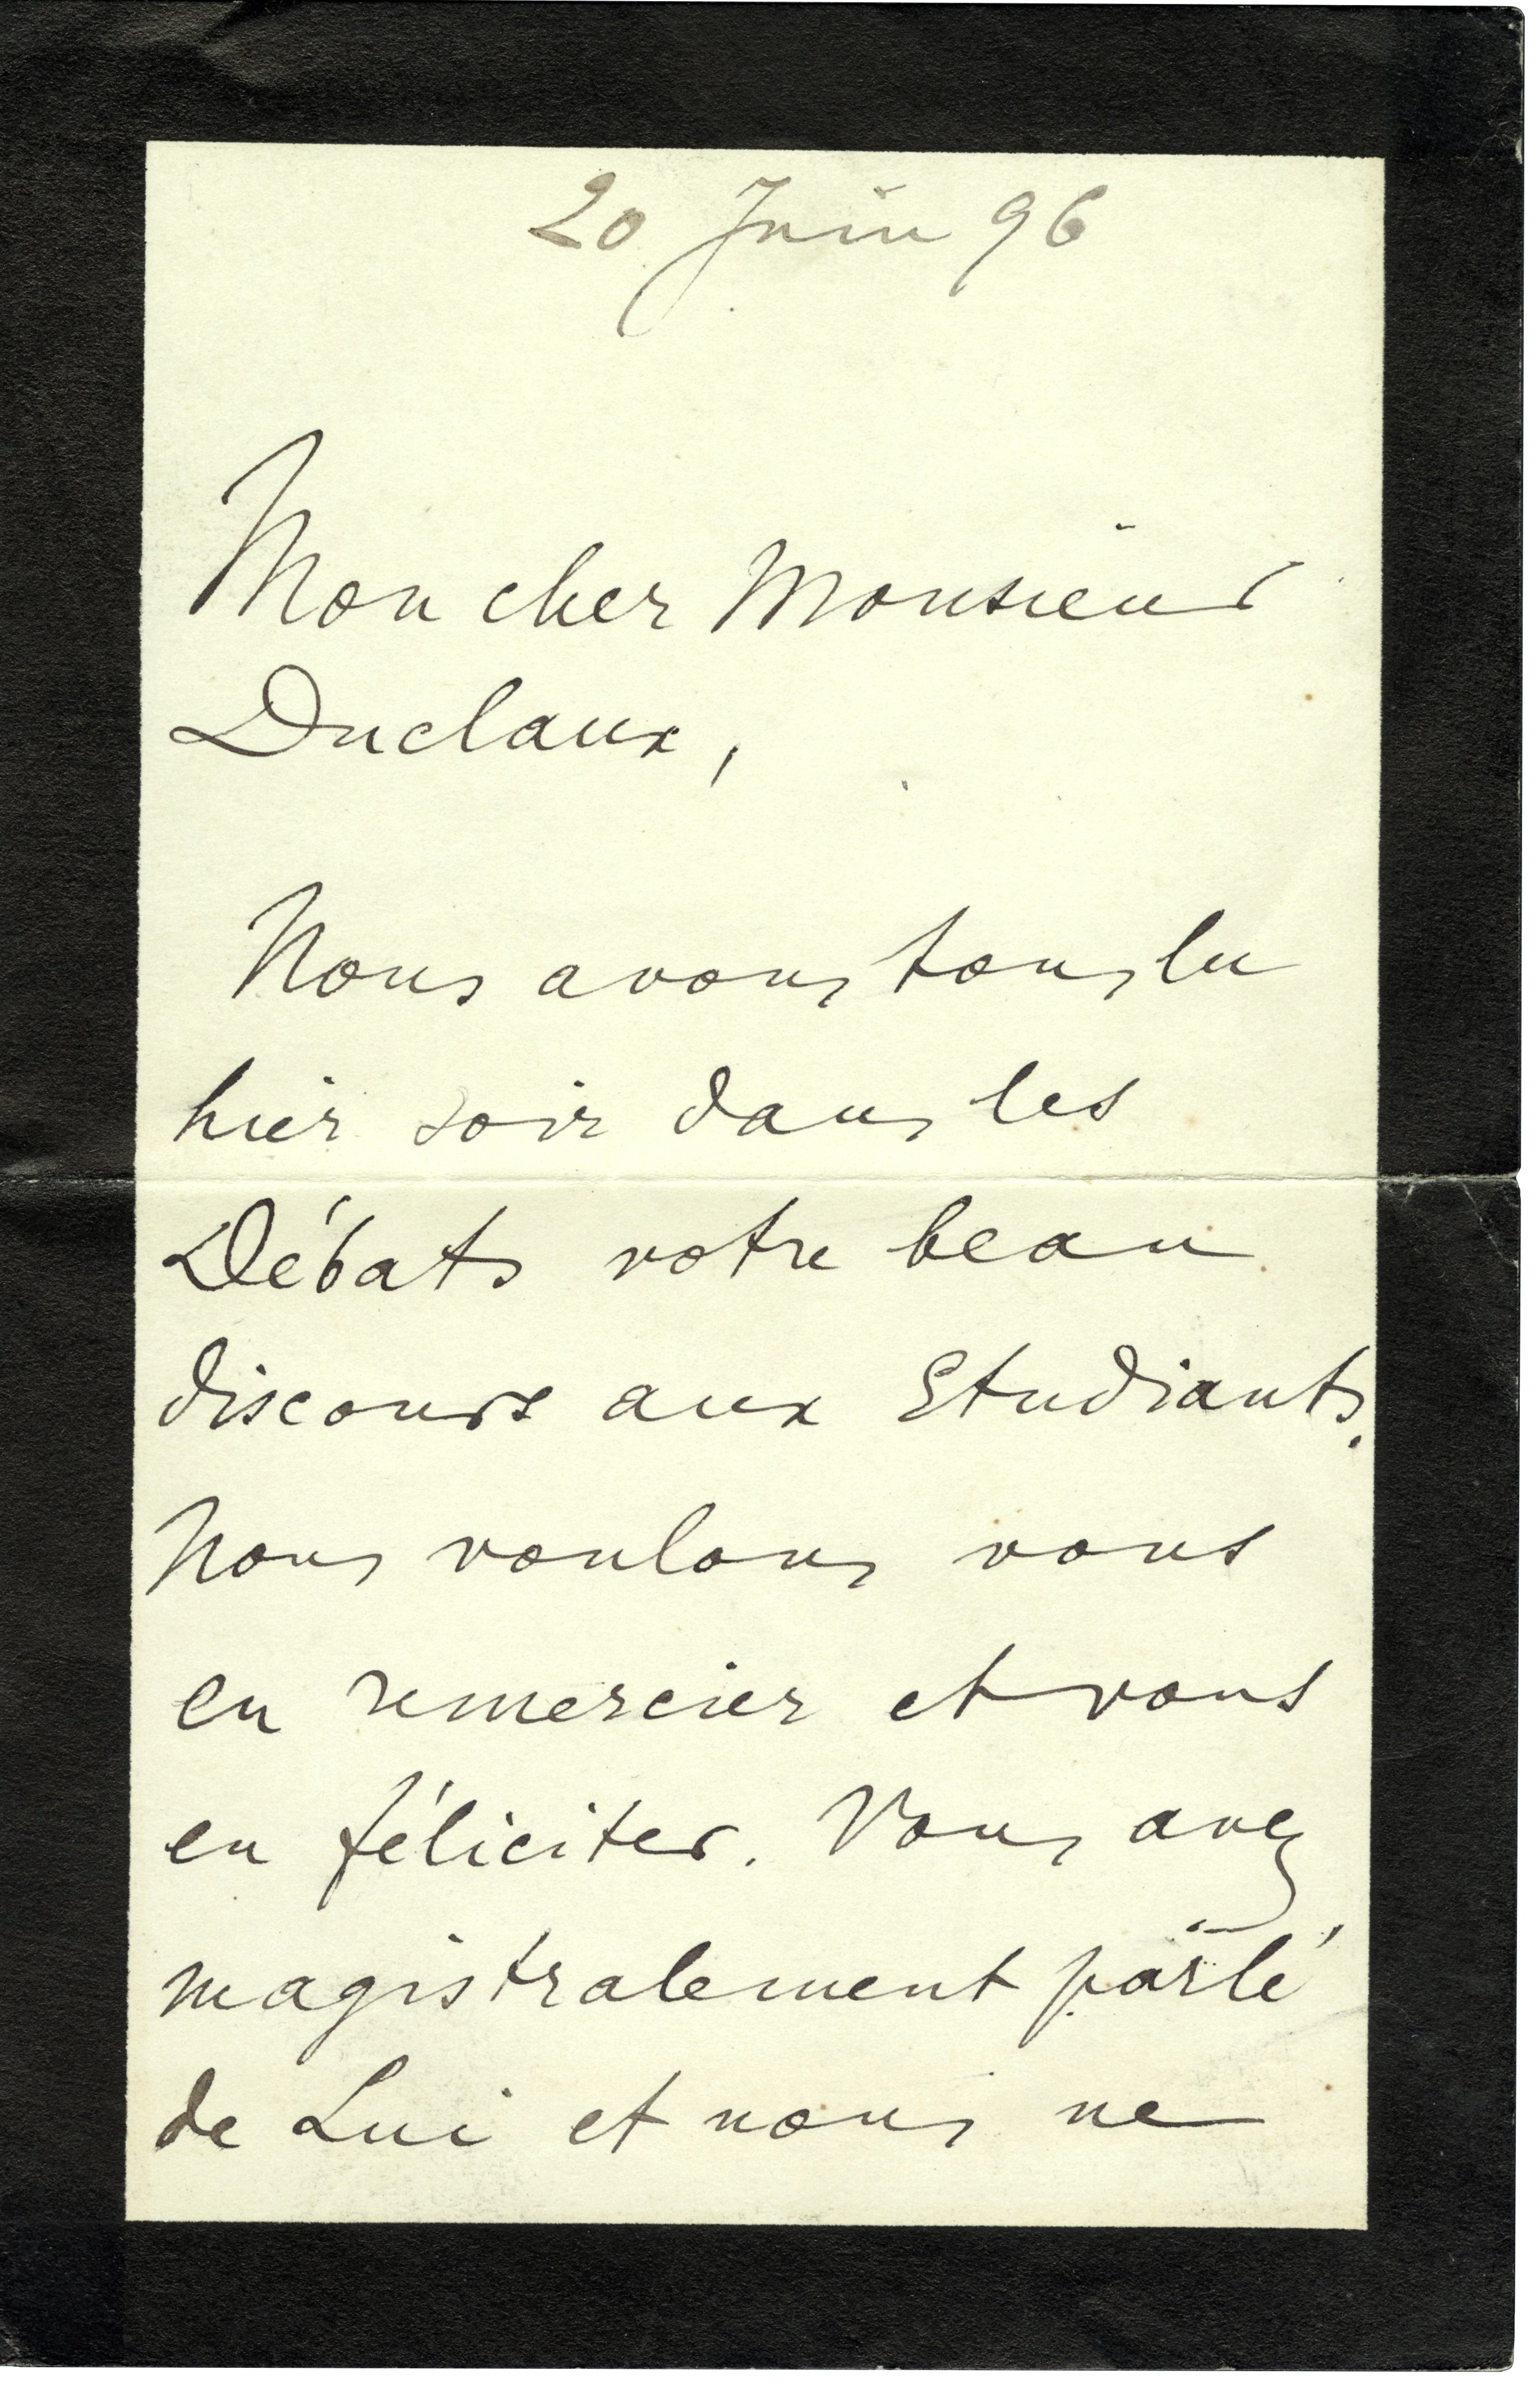 20 Juin 96
Mon cher Monsieur
Duclaux,
Nous avons tous lu
hier soir dans les
Débats votre beau
discours aux Etudiants.
Nous voulons vous
en remercier et vous
en féliciter. Vous avez
magistralement parlé
de Lui et nous ne